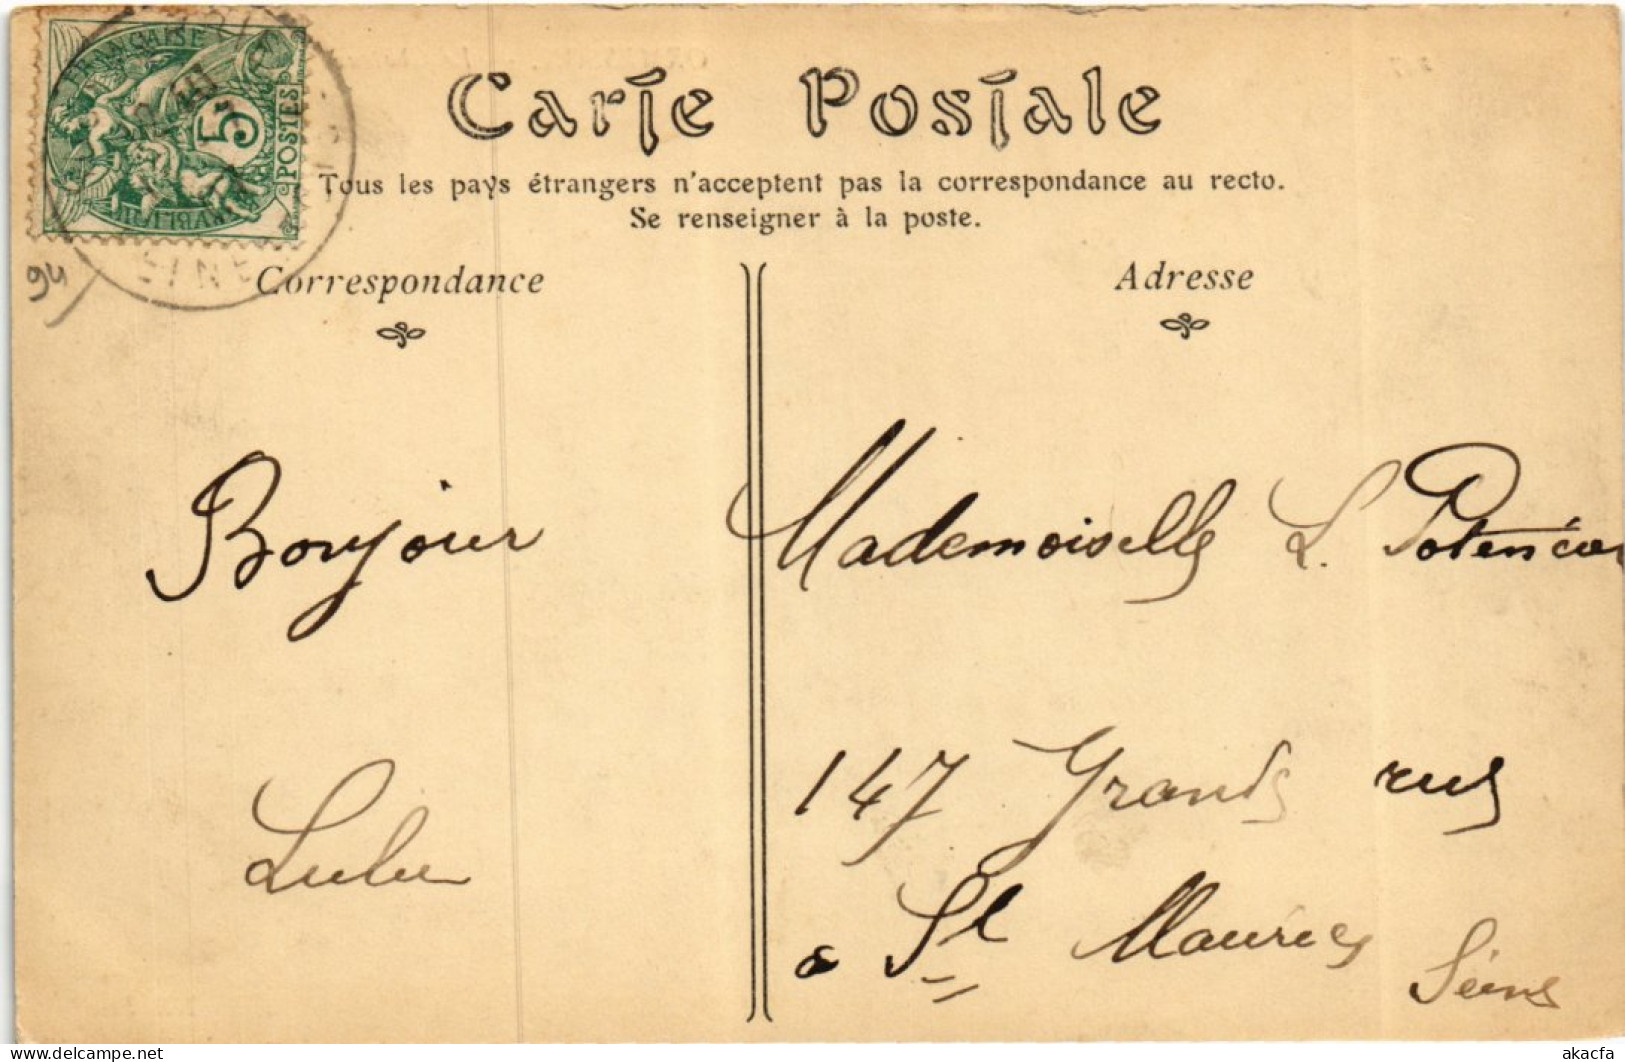 FRANÇAISE
5c
POSTES
SEINE
94
Carte Postale
Tous les pays étrangers n'acceptent pas la correspondance au recto.
Se renseigner à la poste.
Correspondance
Adresse
Bonjour
Lulu
Mademoiselle L.
147 Grande rue
à St Maurice
Seine
akacfa